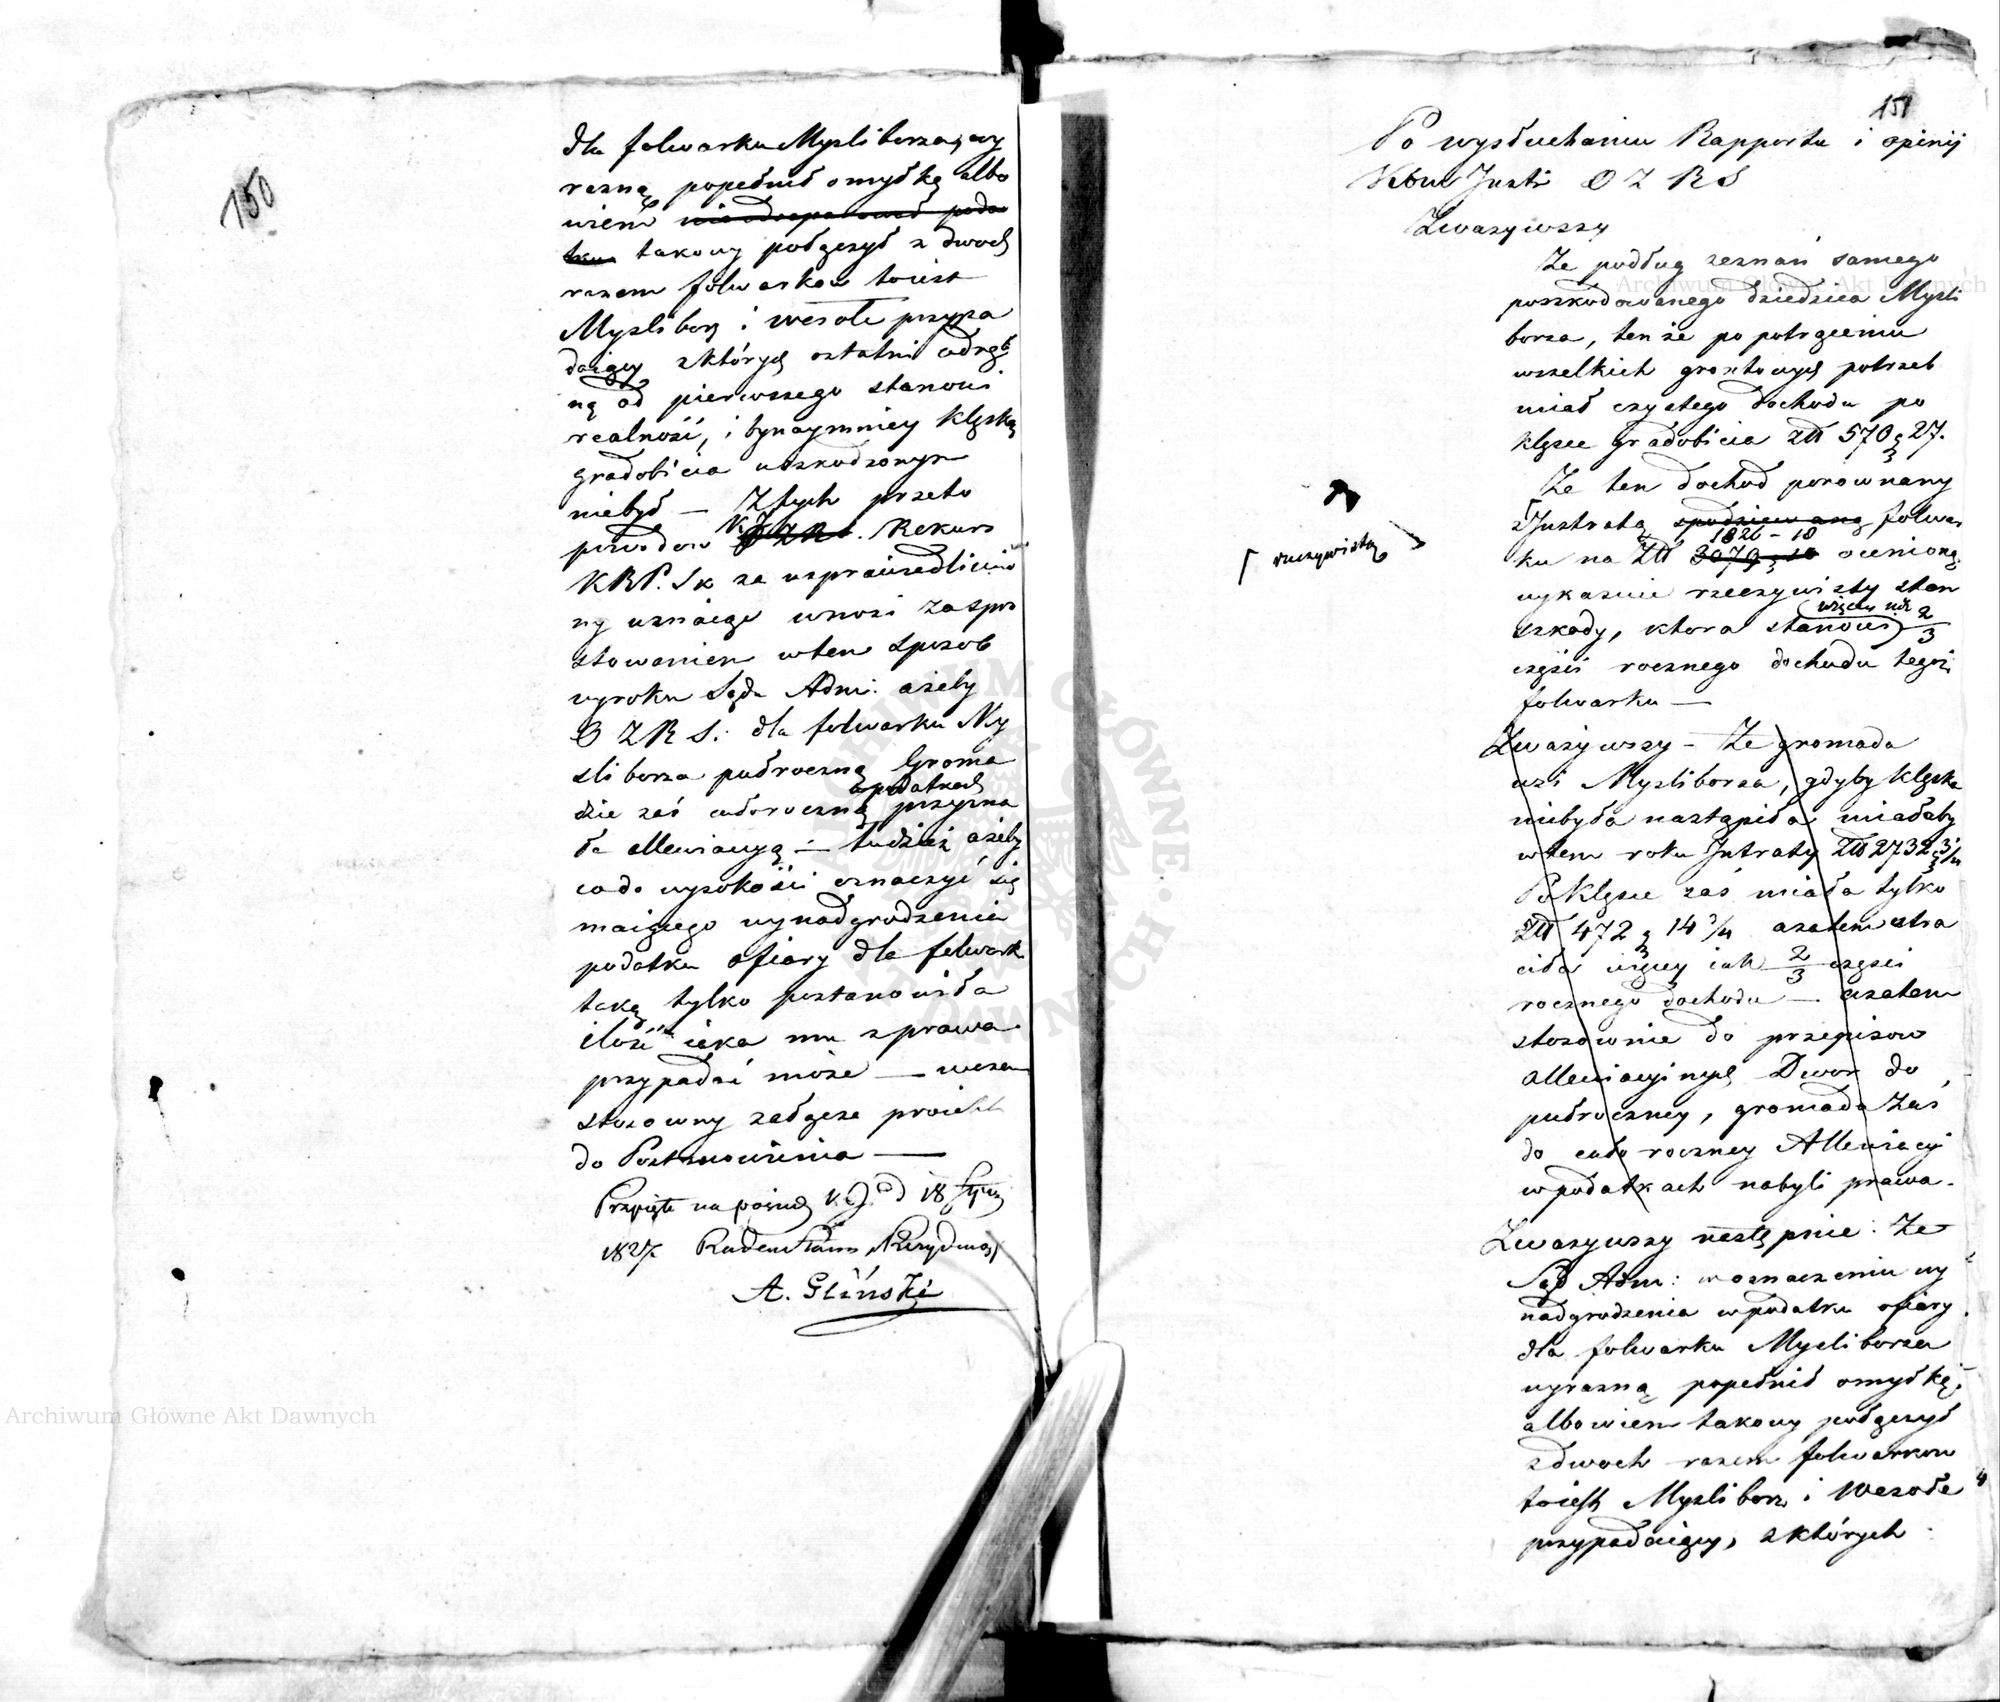 150
dla folwarku Mysliborza, wy
razną popełnił omyłkę albo
wiem nieodseparował poda
tku takowy połączył z dwoch
razem folwarkow toiest
Myslibory i Wesołe przypa
daiący z których ostatni odręb
ną od pierwszego stanowi
realność, i bynaymniey klęską
gradobicia uszkodzonym
niebył — Z tych przeto
powodow Rekurs
KRP. Sk za usprawiedliwio
ny uznaiąc wnosi za spro
stowaniem w ten sposob
wyroku Sądu Admi: ażeby
O Z R S. dla folwarku My
sliborza pułroczną Groma
w podatkach
dzie zaś całoroczną przyzna
ła allewiacyą — tudzież ażeby
co do wysokości oznaczyć się
maiącego wynadgrodzenia
podatku ofiary dla folwark
taką tylko postanowiła
ilość iaka mu z prawa
przypadać może — wczem
stosowny załącza proiekt
do Postanowienia —
Przyięte na posied. d 18 Stycz
1827. Radca Stanu Prezyduiący
A. Gliński
151
Po wysłuchaniu Rapportu i opinij
O Z R S
Zważywszy
Że podług zeznań samego
poszkodowanego dziedzica Mysli
borza, tenże po potrąceniu
wszelkich grontowych potrzeb
miał czystego dochodu po
klęsce gradobicia zł 570 g 27.
Że ten dochod porownany
z Intratą spodziewaną folwar
rzeczywistą
1826 - 18
ku na Zł 3079 g 10 ocenioną
wykazuie rzeczywisty stan
więcey niż
szkody, ktora stanowi 2/3
części rocznego dochodu tegoż
folwarku —
Zważywszy — Że gromada
wsi Mysliborza, gdyby klęska
niebyła nastąpiła miałaby
w tem roku Intraty Zł 2732 g 3/4
Po Klęsce zaś miała tylko
Zł 472 g 14 3/4 azatem stra
ciła więcey iak 2/3 części
rocznego dochodu — azatem
stosownie do przepisow
allewiacyinych Dwor do
pułroczney, gromada zaś
do całoroczney Allewiacyi
w podatkach nabyli prawa.
Zważywszy następnie: Że
Sąd Adm: w oznaczeniu wy
nadgrodzenia w podatku ofiary
dla folwarku Mysliborza
wyrazną popełnił omyłkę,
albowiem takowy połączył
z dwoch razem folwarkow
toiest Myslibory i Wesołe
przypadaiący, z których